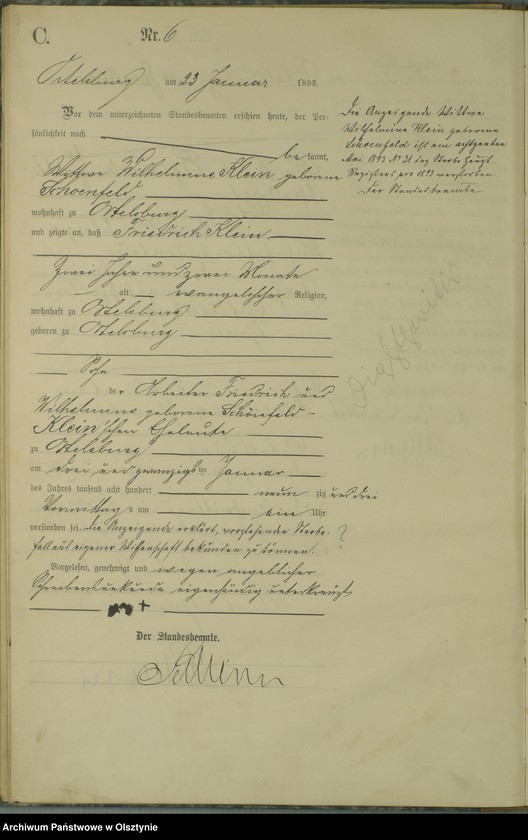 C. Nr. 6
Ortelsburg am 23 Januar 1893.
Vor dem unterzeichneten Standesbeamten erschien heute, der Per-
sönlichkeit nach
bekannt,
Wittwe Wilhelmine Klein geborene
Schoenfeld
wohnhaft zu Ortelsburg
und zeigte an, daß Friedrich Klein
Zwei Jahre und zwei Monate
alt, evangelischer Religion,
wohnhaft zu Ortelsburg
geboren zu Ortelsburg
Sohn
der Arbeiter Friedrich und
Wilhelmine geborene Schönfeld-
Klein'schen Eheleute
zu Ortelsburg
am drei und zwanzigsten Januar
des Jahres tausend acht hundert neunzig und drei
Vormittags um ein Uhr
verstorben sei. Die Anzeigende erklärt, vorstehenden Sterbe-
fall aus eigener Wissenschaft bekunden zu können.
Vorgelesen, genehmigt und wegen angeblicher
Schreibensunkunde eigenhändig unterkreuzt
+++
Der Standesbeamte.
Die Anzeigende Wittwe
Wilhelmine Klein geborene
Schoenfeld ist am achtzehnten
Mai 1893 No 31 des Sterbe Haupt
Registers pro 1893 verstorben.
Der Standesbeamte
?
Archiwum Państwowe w Olsztynie